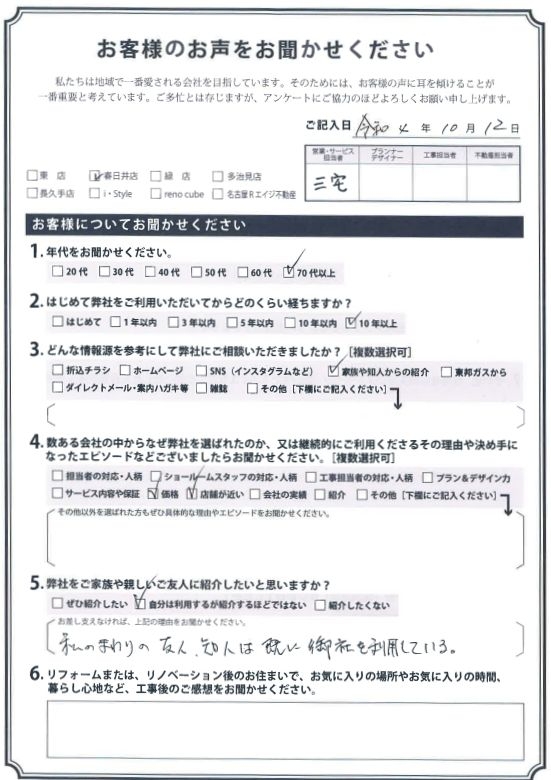 お客様のお声をお聞かせください
私たちは地域で一番愛される会社を目指しています。そのためには、お客様の声に耳を傾けることが
一番重要と考えています。ご多忙とは存じますが、アンケートにご協力のほどよろしくお願い申し上げます。
ご記入日 令和 4 年 10 月 12 日
営業・サービス担当者 プランナーデザイナー 工事担当者 不動産担当者
三宅
□東 店 ☑春日井店 □緑 店 □多治見店
□長久手店 □i・Style □reno cube □名古屋Rエイジ不動産
お客様についてお聞かせください
1. 年代をお聞かせください。
□20代 □30代 □40代 □50代 □60代 ☑70代以上
2. はじめて弊社をご利用いただいてからどのくらい経ちますか？
□はじめて □1年以内 □3年以内 □5年以内 □10年以内 ☑10年以上
3. どんな情報源を参考にして弊社にご相談いただきましたか？［複数選択可］
□折込チラシ □ホームページ □SNS（インスタグラムなど） ☑家族や知人からの紹介 □東邦ガスから
□ダイレクトメール・案内ハガキ等 □雑誌 □その他［下欄にご記入ください］
4. 数ある会社の中からなぜ弊社を選ばれたのか、又は継続的にご利用くださるその理由や決め手に
なったエピソードなどございましたらお聞かせください。［複数選択可］
□担当者の対応・人柄 ☑ショールームスタッフの対応・人柄 □工事担当者の対応・人柄 □プラン＆デザイン力
□サービス内容や保証 ☑価格 ☑店舗が近い □会社の実績 □紹介 □その他［下欄にご記入ください］
その他以外を選ばれた方もぜひ具体的な理由やエピソードをお聞かせください。
5. 弊社をご家族や親しいご友人に紹介したいと思いますか？
□ぜひ紹介したい ☑自分は利用するが紹介するほどではない □紹介したくない
お差し支えなければ、上記の理由をお聞かせください。
私のまわりの友人、知人は既に御社を利用している。
6. リフォームまたは、リノベーション後のお住まいで、お気に入りの場所やお気に入りの時間、
暮らし心地など、工事後のご感想をお聞かせください。